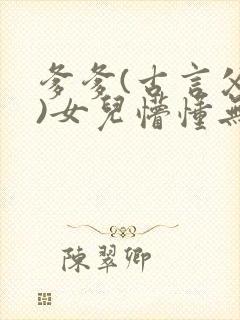 爹爹(古言父
)女兒懵懂無
陳翠卿